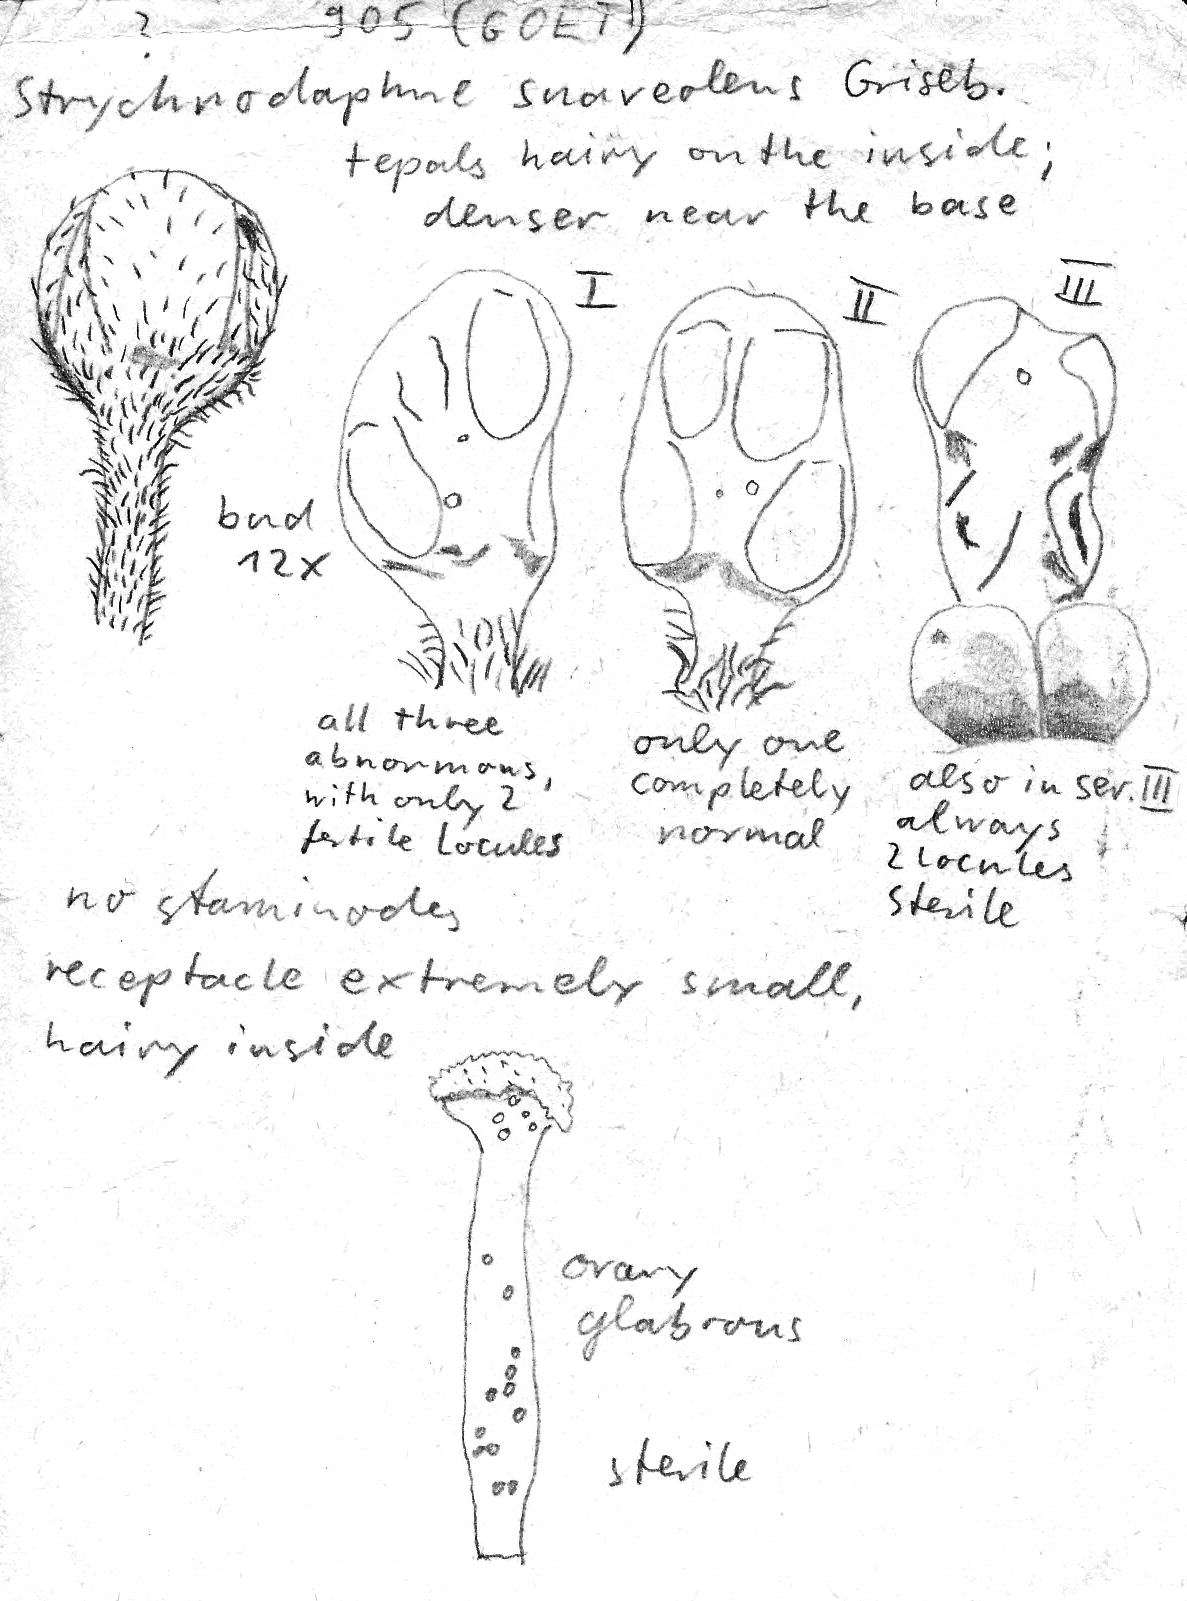 ? 905 (GOET)
Strychnodaphne suaveolens Griseb.
tepals hairy on the inside;
denser near the base
I
II
III
bud
12x
all three
abnormous,
with only 2
fertile locules
only one
completely
normal
also in ser. III
always
2 locules
sterile
no staminodes
receptacle extremely small,
hairy inside
ovary
glabrous
sterile